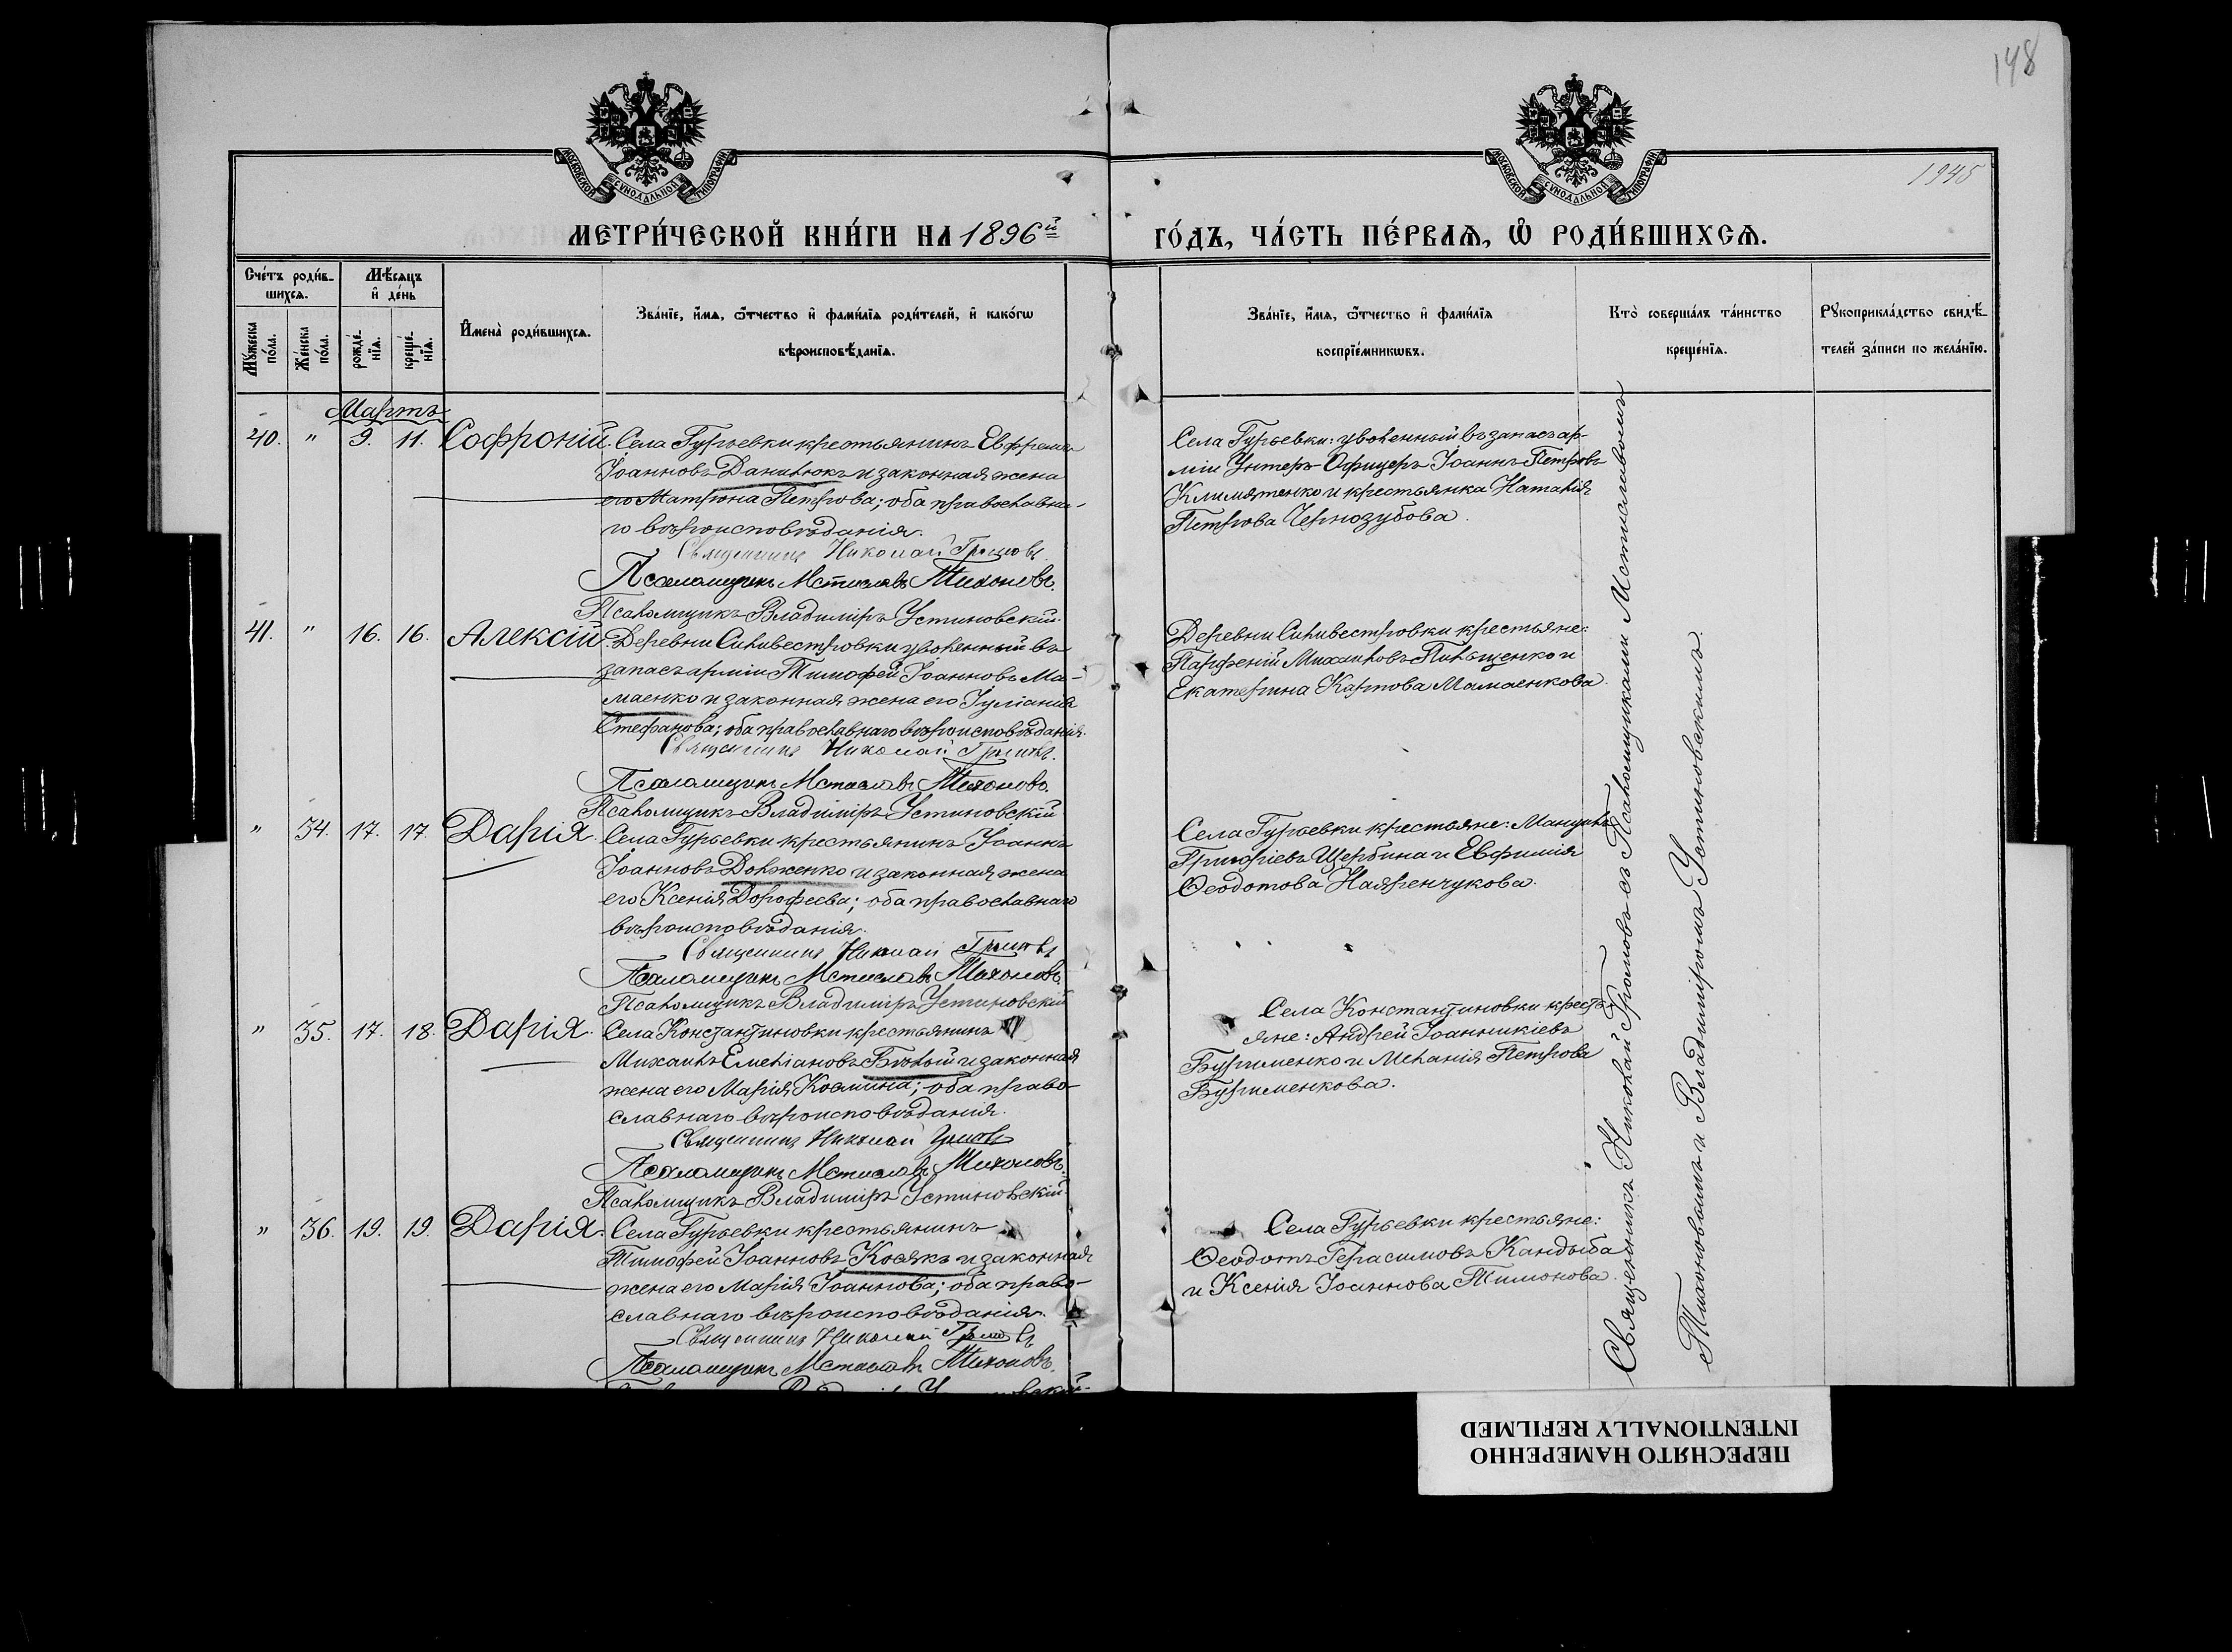 148
1945
МОСКОВСКОЙ СѴНОДАЛЬНОЙ ТИПОГРАФІИ
МОСКОВСКОЙ СѴНОДАЛЬНОЙ ТИПОГРАФІИ
МЕТРИ́ЧЕСКОЙ КНИ́ГИ НА 1896й
ГО́ДЪ, ЧА́СТЬ ПЕ́РВАѦ, Ѡ҆ РОДИ́ВШИХСѦ.
Сче́тъ роди́в-
шихсѧ.
Мѣ́сѧцъ
и҆ де́нь
Мꙋ́жеска по́ла.
Же́нска по́ла.
рожде́-
нїѧ.
креще́-
нїѧ.
И҆мена̀ роди́вшихсѧ.
Зва́нїе, и҆́мѧ, ѻ҆́тчество и҆ фами́лїѧ роди́телей, и҆ како́гѡ
вѣроисповѣ́данїѧ.
Зва́нїе, и҆́мѧ, ѻ҆́тчество и҆ фами́лїѧ
воспрїе́мникѡвъ.
Кто̀ соверша́лъ та́инство
креще́нїѧ.
Рꙋкоприкла́дство свидѣ́-
телей за́писи по жела́нїю.
Мартъ
40. " 9. 11. Софроній.
Села Гурьевки крестьянинъ Евфремъ
Іоанновъ Данилюкъ и законная жена
его Матрона Петрова; оба православна-
го вѣроисповѣданія.
Священникъ Николай Громовъ
Псаломщикъ Мстиславъ Тихоновъ.
Псаломщикъ Владиміръ Устиновскій.
Села Гурьевки: уволенный въ запасъ ар-
міи Унтеръ-Офицеръ Іоаннъ Петровъ
Климятенко и крестьянка Наталія
Петрова Чернозубова.
41. " 16. 16. Алексій
Деревни Сильвестровки уволенный въ
запасъ арміи Тимофей Іоанновъ Ма-
маенко и законная жена его Іуліанія
Стефанова; оба православнаго вѣроисповѣданія.
Священникъ Николай Громовъ.
Псаломщикъ Мстиславъ Тихоновъ.
Псаломщикъ Владиміръ Устиновскій
Деревни Сильвестровки крестьяне:
Парфеній Михаиловъ Пильщенко и
Екатерина Карпова Мамаенкова.
" 34. 17. 17. Дарія.
Села Гурьевки крестьянинъ Іоаннъ
Іоанновъ Долженко и законная жена
его Ксенія Дорофеева; оба православнаго
вѣроисповѣданія.
Священникъ Николай Громовъ
Псаломщикъ Мстиславъ Тихоновъ.
Псаломщикъ Владиміръ Устиновскій
Села Гурьевки крестьяне: Мануилъ
Григоріевъ Щербина и Евфимія
Ѳеодотова
" 35. 17. 18. Дарія.
Села Константиновки крестьянинъ
Михаилъ Емеліановъ Бѣлый и законная
жена его Марія Козмина; оба право-
славнаго вѣроисповѣданія.
Священникъ Николай Громовъ
Псаломщикъ Мстиславъ Тихоновъ.
Псаломщикъ Владиміръ Устиновскій
Села Константиновки кресть-
яне: Андрей Іоанникіевъ
Буршменко и Меланія Петрова
Буршменкова.
" 36. 19. 19. Дарія.
Села Гурьевки крестьянинъ
Тимофей Іоанновъ Косякъ и законная
жена его Марія Іоаннова; оба право-
славнаго вѣроисповѣданія.
Священникъ Николай Громовъ
Псаломщикъ Мстиславъ Тихоновъ.
Села Гурьевки крестьяне:
Ѳеодотъ Герасимовъ Кандыба
и Ксенія Іоаннова Тимонова.
Священникъ Николай Громовъ съ Псаломщиками Мстиславомъ
Тихоновымъ и Владиміромъ Устиновскимъ.
ПЕРЕСНЯТО НАМЕРЕННО
INTENTIONALLY REFILMED